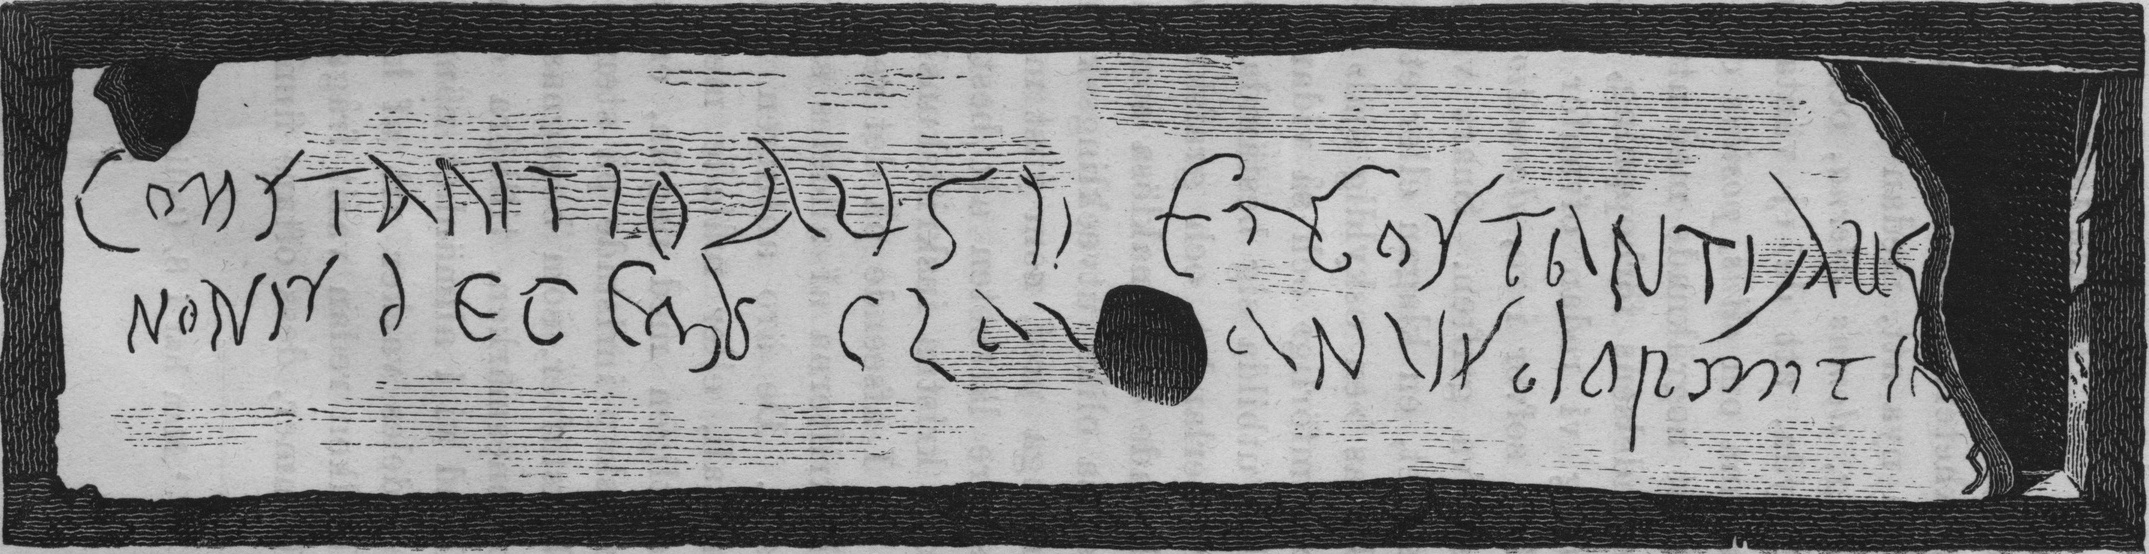 CONSTANTIO AUG II ET CONSTANTI AUG
NONIS DECEMB ANUS DORMIT IN